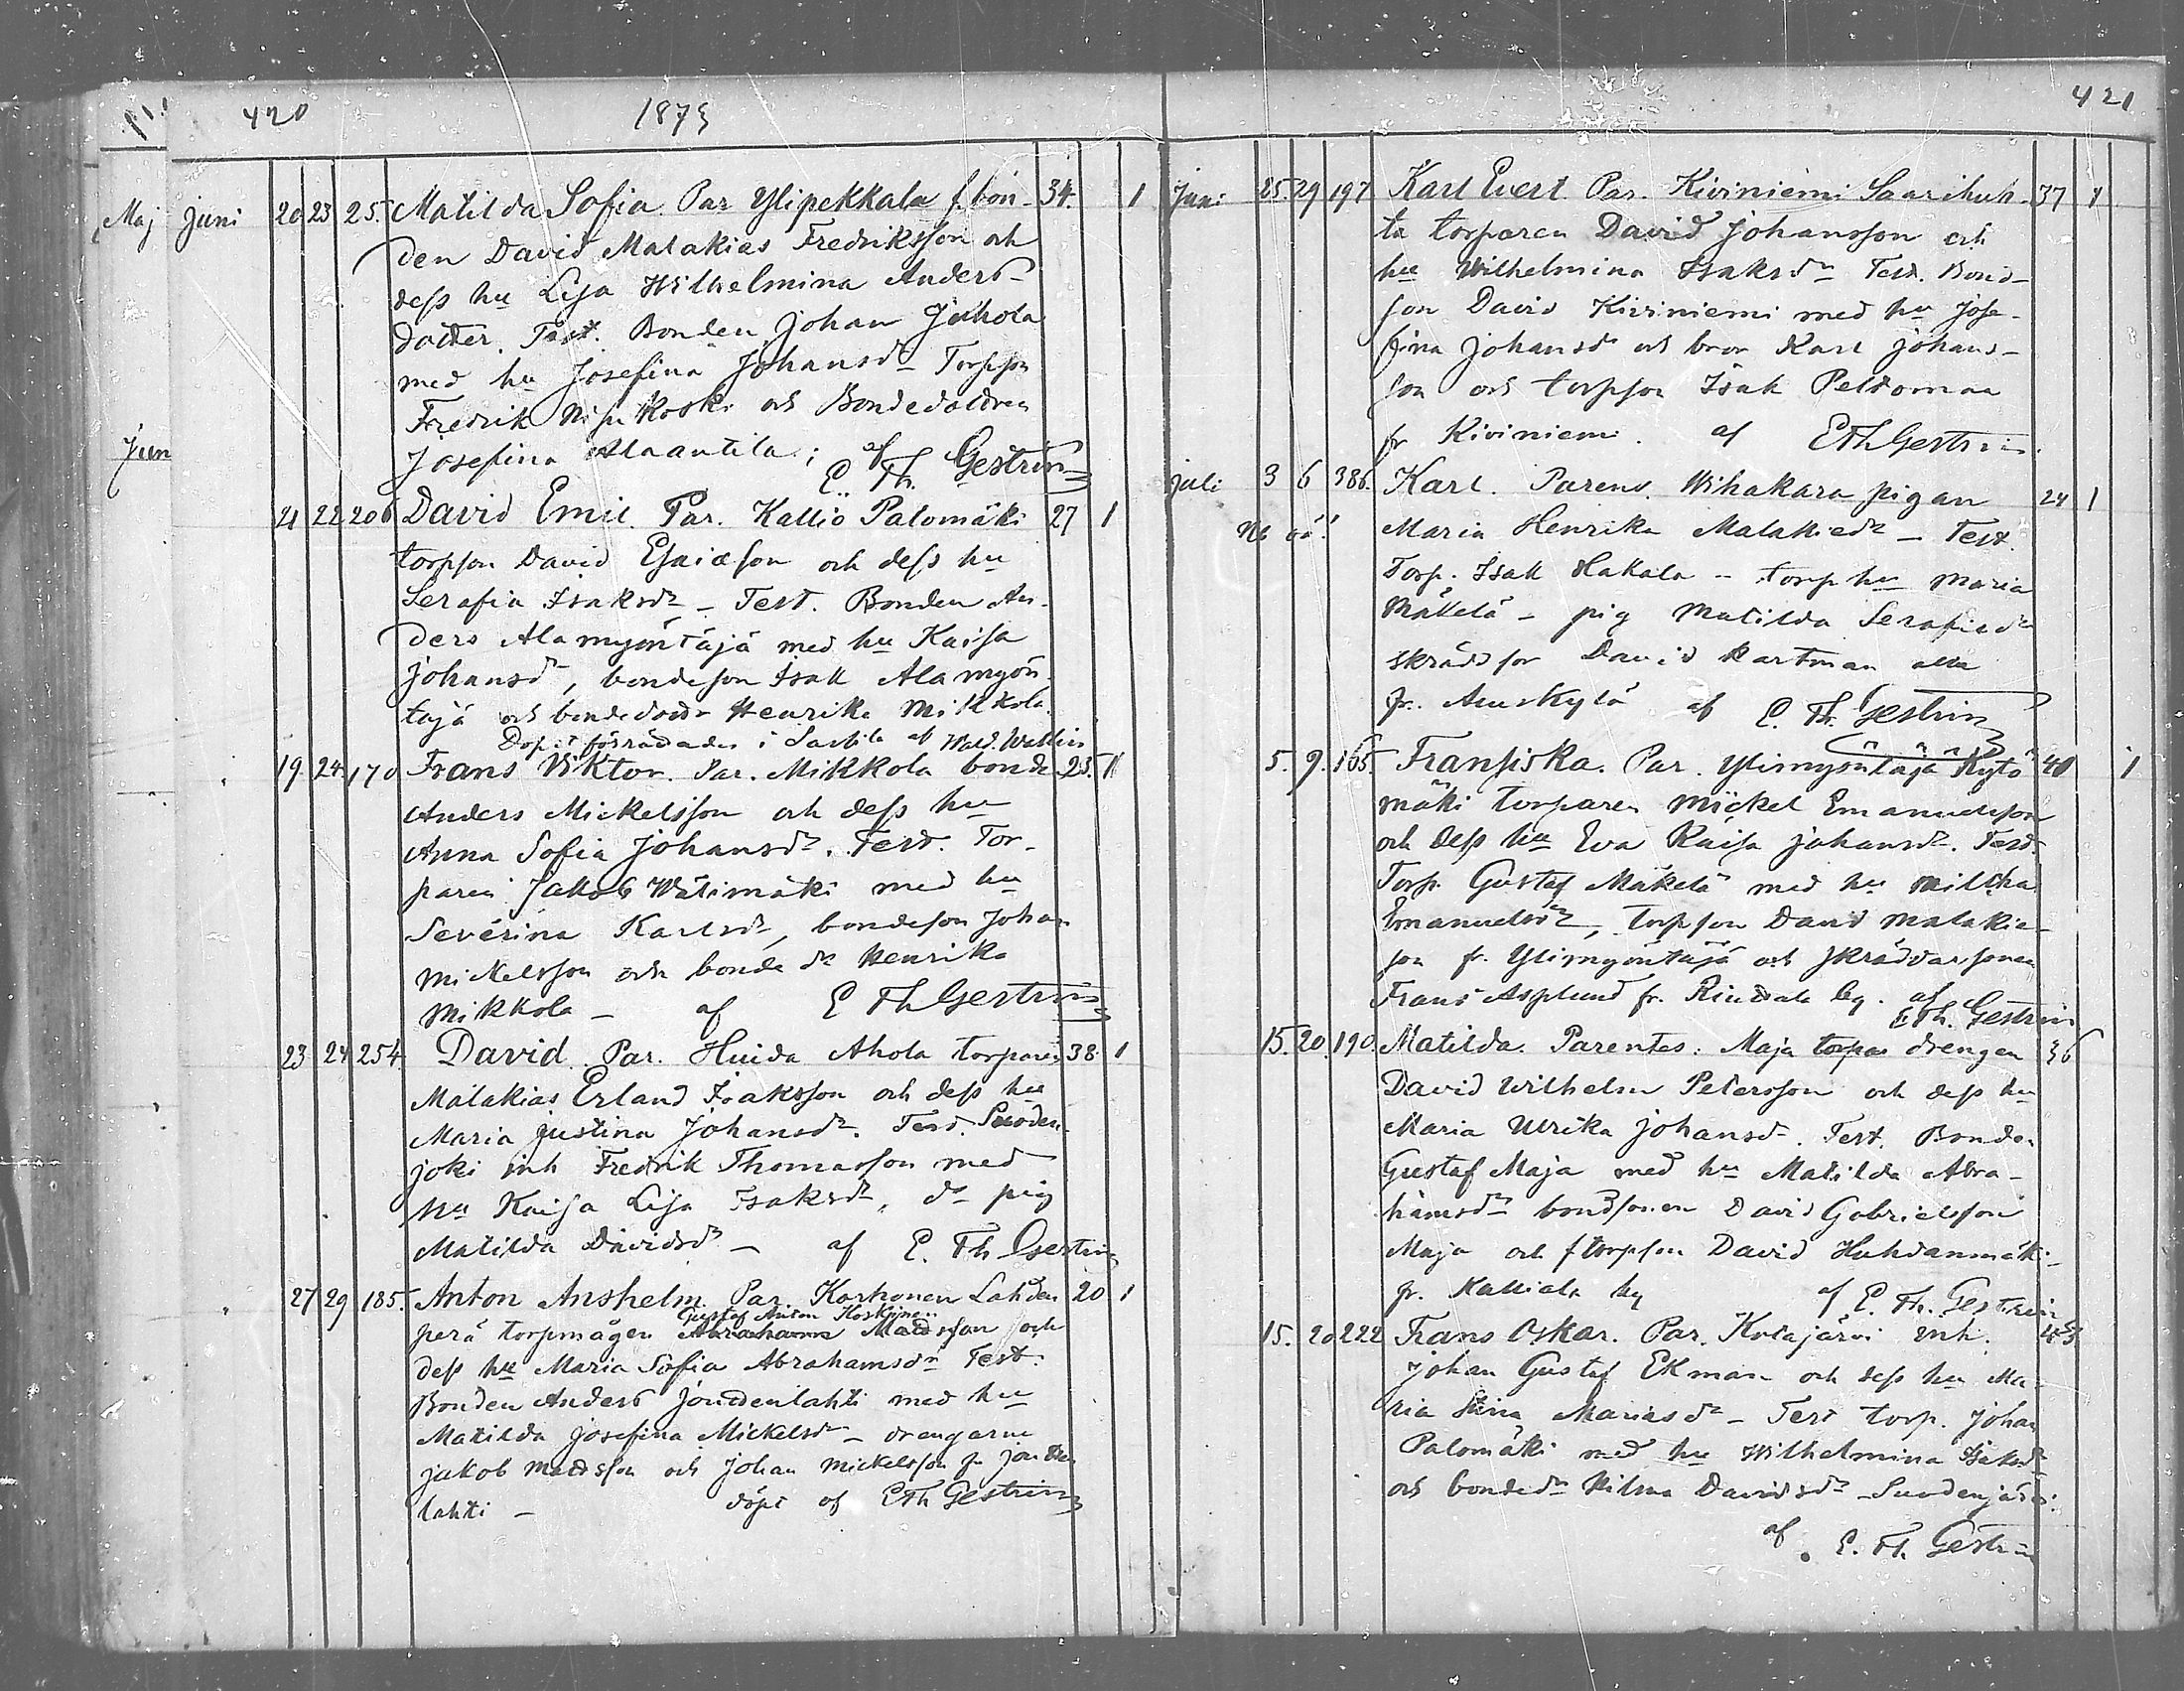 420 1873
Maj
Juni 20 23 25. Matilda Sofia. Par Ylipekkala f. bon- 34. 1
den David Malakias Fredriksson och
dess hu Lisa Wilhelmina Anders-
dotter. Test. Bonden Johan Juhola
med hu Josefina Johansdr Torpson
Fredrik Koski och Bondedottren
Josefina Alaantila; af
E. Th. Gestrin
21 22 206 David Emil. Par. Kallio Palomäki 27 1
torpson David Esaiasson och dess hu
Serafia Isaksdr – Test. Bonden An-
ders Alamyöntäjä med hu Kaisa
Johansd, bondeson Isak Alamyön
täjä och bondedottr Henrika Mikkola.
Dopet förrättades i af Wald. Wallin
19. 24. 170 Frans Viktor. Par. Mikkola bonde 23. 1
Anders Mickelsson och dess hu
Anna Sofia Johansdr. Test. Tor-
paren Jakob Wätimäki med hu
Severina Karlsdr, bondeson Johan
Mickelsson och bonde dr Henrika
Mikkola – af E Th Gestrin
23 24 254. David. Par. Huida Ahola torparen 38. 1
Malakias Erland Isaksson och dess hu
Maria Justina Johansdr. Test. Suoden-
joki inh Fredrik Thomasson med
hu Kaisa Lisa Isaksdr, dr pig
Matilda Davidsdr – af E. Th Gestrin
27 29 185. Anton Anshelm. Par. Korhonen Lahden 20 1
Gustaf Anton Koskinen
perä torpmågen Abrahams Mattsson och
dess hu Maria Sofia Abrahamsdr Test.
Bonden Anders Joudenlahti med hu
Matilda Josefina Mickelsdr – drengarne
Jakob Mattsson och Johan Mickelsson fr Jouden
lahti – döpt af E Th Gestrin
421
Juni 25. 29 197 Karl Evert. Par. Kiviniemi Saarihuh- 37 1
ta torparen David Johansson och
hu Wilhelmina Isaksdr Test. Bond-
son David Kiviniemi med hu Jose-
fina Johansdr och bror Karl Johans-
son och torpson Isak Peltomaa
fr Kiviniemi. af E Th Gestrin.
Juli 3 6 386. Karl. Parens. Wihakara pigan 24 1
Nb oä! Maria Henrika Malakiedr – Test.
Torp. Isak Hakala – torp hu Maria
Mäkelä – pig Matilda Serafiedr
skrädd son David Hartman alla
fr. af E. Th. Gestrin
5. 9. 165. Fransiska. Par. Ylimyöntäjä Kytö 40 1
mäki torparen Mickel Emanuelsson
och dess hu Eva Kaisa Johansdr. Test.
Torp. Gustaf Mäkelä med hu Miltha
Emanuelsdr, torpson David Malakia-
son fr. Ylimyöntäjä och skräddarsonen
Frans Asplund fr. by. af
E Th. Gestrin
15. 20. 190. Matilda. Parentes. Maja torpar drengen 36
David Wilhelm Petersson och dess hu
Maria Ulrika Johansd. Test. Bonden
Gustaf Maja med hu Matilda Abra-
hamsdr bondsonen David Gabrielsson
Maja och f torpson David Huhdanmäki
fr. Kalliala by af E. Th. Gestrin
15. 20 222 Frans Oskar. Par. Kotajärvi inh. 43
Johan Gustaf Ekman och dess hu Ma-
ria Stina Mariasdr – Test torp. Johan
Palomäki med hu Wilhelmina Isaksdr
och bondedr Hilma Davidsdr – Suodenjärvi.
af E. Th. Gestrin